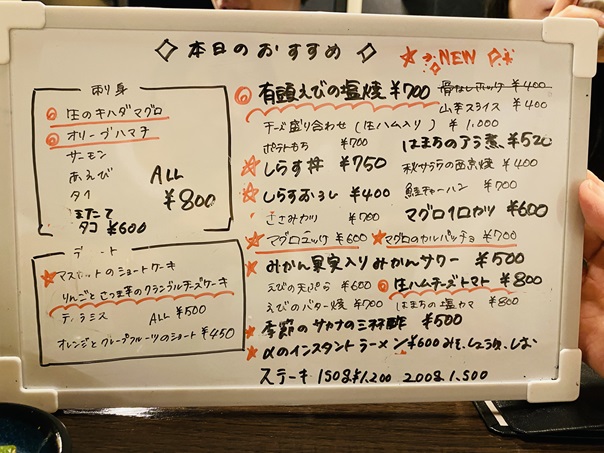 本日のおすすめ
NEW
刺身
生のキハダマグロ
オリーブハマチ
サーモン
あえび
タイ
ALL ¥800
タコ ¥600
デザート
マスカットのショートケーキ
りんごとさつま芋のクランブルチーズケーキ
ティラミス ALL ¥500
オレンジとグレープフルーツのショート ¥450
有頭えびの塩焼 ¥700
チーズ盛り合わせ(生ハム入り) ¥1,000
ポテトもち ¥700
しらす丼 ¥750
しらすおろし ¥400
ささみカツ ¥700
マグロユッケ ¥600
みかん果実入りみかんサワー ¥500
えびの天ぷら ¥600
えびのバター焼 ¥700
季節のサカナの三杯酢 ¥500
αのインスタントラーメン ¥600 みそ、しょうゆ、しお
ステーキ 150g ¥1,200 200g 1,500
骨なしホッケ ¥400
山芋スライス ¥400
はまちのアラ煮 ¥520
秋サワラの西京焼 ¥400
鮭チャーハン ¥700
マグロ1口カツ ¥600
マグロのカルパッチョ ¥700
生ハムチーズトマト ¥800
はまちの塩カマ ¥800